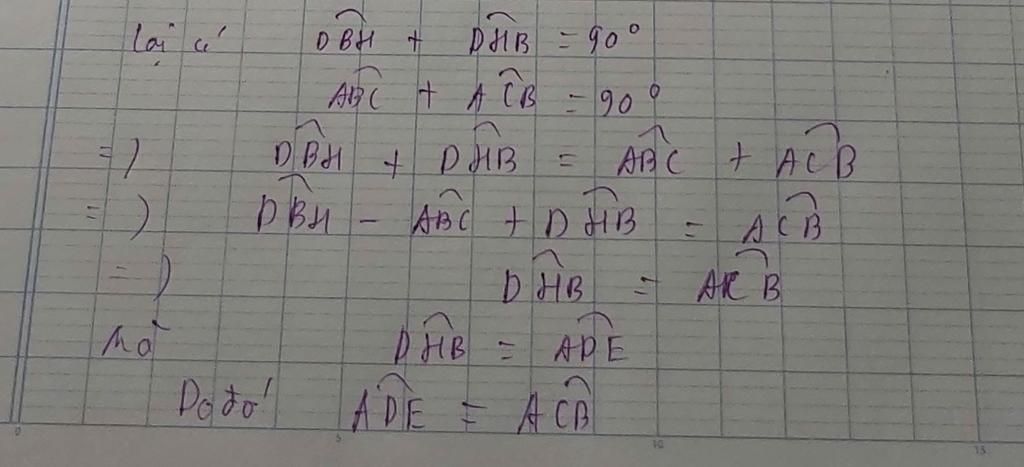 Lại có DBH + DHB = 90°
ABC + ACB = 90°
=) DBH + DHB = ABC + ACB
=) DBH - ABC + DHB = ACB
=) DHB = ACB
Mà DHB = ADE
Do đó ADE = ACB
0 5 10 15